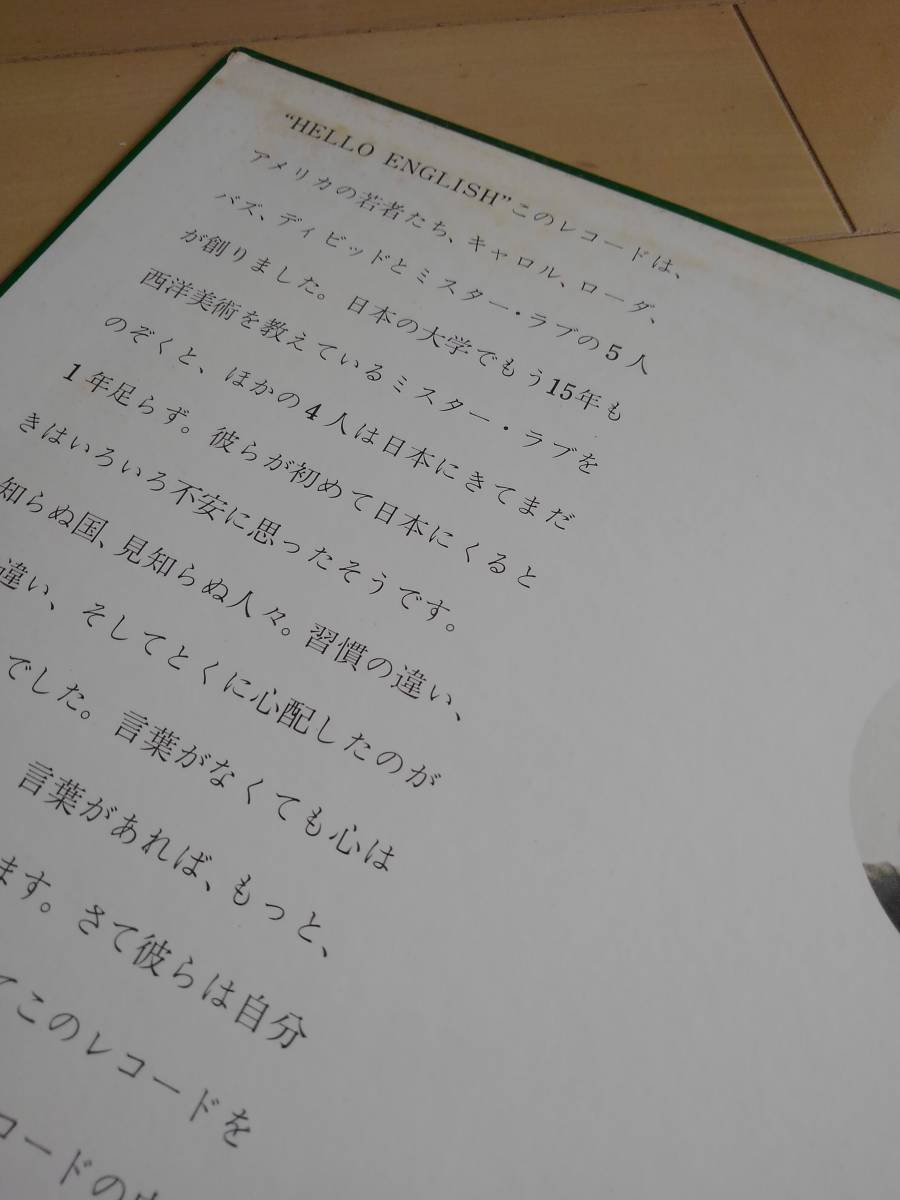 “HELLO ENGLISH”このレコードは、
アメリカの若者たち、キャロル、ローダ、
バズ、ディビッドとミスター・ラブの5人
が創りました。日本の大学でもう15年も
西洋美術を教えているミスター・ラブを
のぞくと、ほかの4人は日本にきてまだ
1年足らず。彼らが初めて日本にくると
きはいろいろ不安に思ったそうです。
知らぬ国、見知らぬ人々。習慣の違い、
違い、そしてとくに心配したのが
でした。言葉がなくても心は
言葉があれば、もっと、
ます。さて彼らは自分
てこのレコードを
コードの